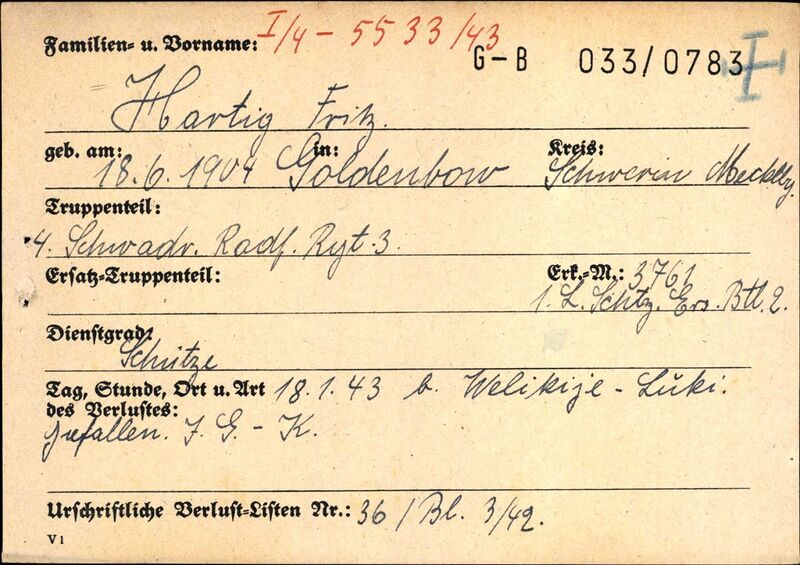 Familien- u. Vorname: I/4 - 5533/43
G-B 033/0783
Hartig Fritz.
geb. am: 18.6.1904 in: Goldenbow Kreis: Schwerin Mecklbg.
Truppenteil:
4. Schwadr. Radf. Rgt. 3.
Ersatz-Truppenteil: Erk.-M.: 3761
1. L. Schtz. Ers. Btl. 2.
Dienstgrad:
Schütze
Tag, Stunde, Ort u. Art 18.1.43 b. Welikije - Luki.
des Verlustes:
gefallen. J. G. - K.
Urschriftliche Verlust-Listen Nr.: 36 / Bl. 3/42.
V1